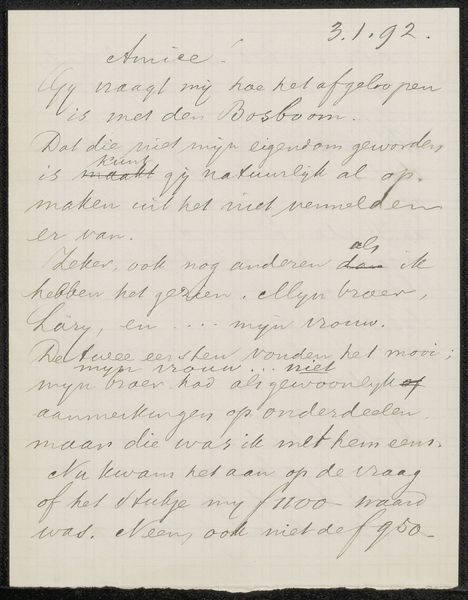 3.1.92.
Amice!
Gy vraagt my hoe het afgeloopen
is met den Bosboom.
Dat die niet myn eigendom geworden
kunt
is maakt gy natuurlyk al op-
maken uit het niet vermelden
er van.
als
Zeker, ook nog anderen dan ik
hebben het gezien. Myn broer,
Lary, en .... myn vrouw.
De twee eersten vonden het mooi;
myn vrouw ... niet
myn broer had als gewoonlyk of
aanmerkingen op onderdeelen
maar die was ik met hem eens.
Nu kwam het aan op de vraag
of het stukje my f 1100 waard
was. Neen, ook niet de f 950-